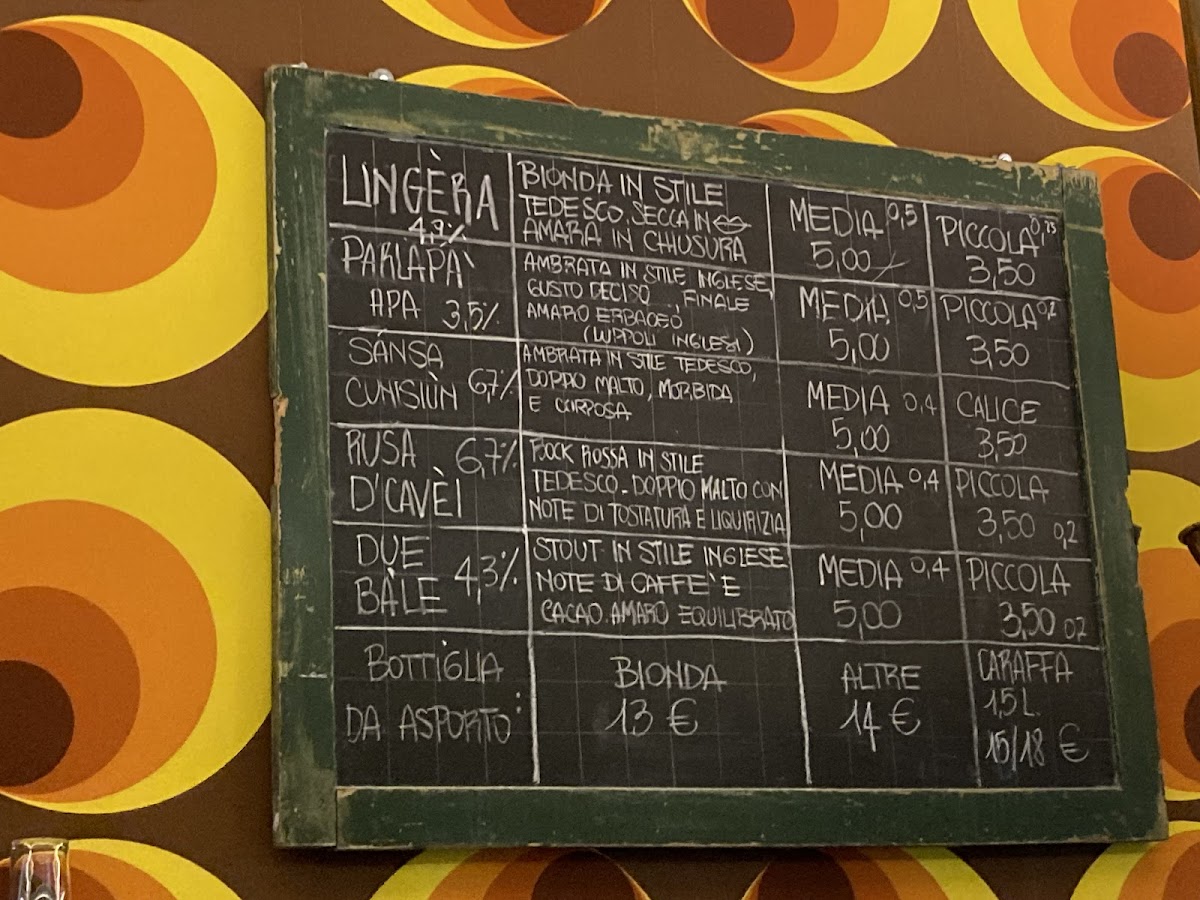 LINGÈRA
4,9%
BIONDA IN STILE
TEDESCO. SECCA IN
AMARA IN CHIUSURA
MEDIA 0,5
5,00
PICCOLA
3,50
PARLAPÀ
APA 3,5%
AMBRATA IN STILE INGLESE,
GUSTO DECISO.. FINALE
AMARO ERBACEO
(LUPPOLI INGLESI)
MEDIA 0,5
5,00
PICCOLA 0,2
3,50
SÁNSA
CUNISIÙN 6,7%
AMBRATA IN STILE TEDESCO,
DOPPIO MALTO, MORBIDA
E CORPOSA
MEDIA 0,4
5,00
CALICE
3,50
RUSA 6,7%
D'CAVÈI
BOCK ROSSA IN STILE
TEDESCO-DOPPIO MALTO CON
NOTE DI TOSTATURA E LIQUIRIZIA
MEDIA 0,4
5,00
PICCOLA
3,50 0,2
DUE
BÀLE 4,3%
STOUT IN STILE INGLESE
NOTE DI CAFFE' E
CACAO AMARO EQUILIBRATO
MEDIA 0,4
5,00
PICCOLA
3,50 0,2
BOTTIGLIA
DA ASPORTO:
BIONDA
13 €
ALTRE
14 €
CARAFFA
1,5 L.
15/18 €